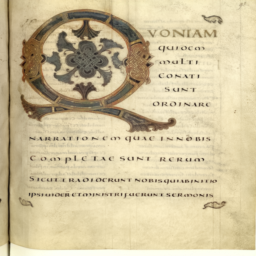 QVONIAM
QUIDEM
MULTI
CONATI
SUNT
ORDINARE
NARRATIONEM QUAE IN NOBIS
COMPLETAE SUNT RERUM
SICUT TRADIDERUNT NOBIS QUI AB INITIO
IPSI VIDERUNT ET MINISTRI FUERUNT SERMONIS